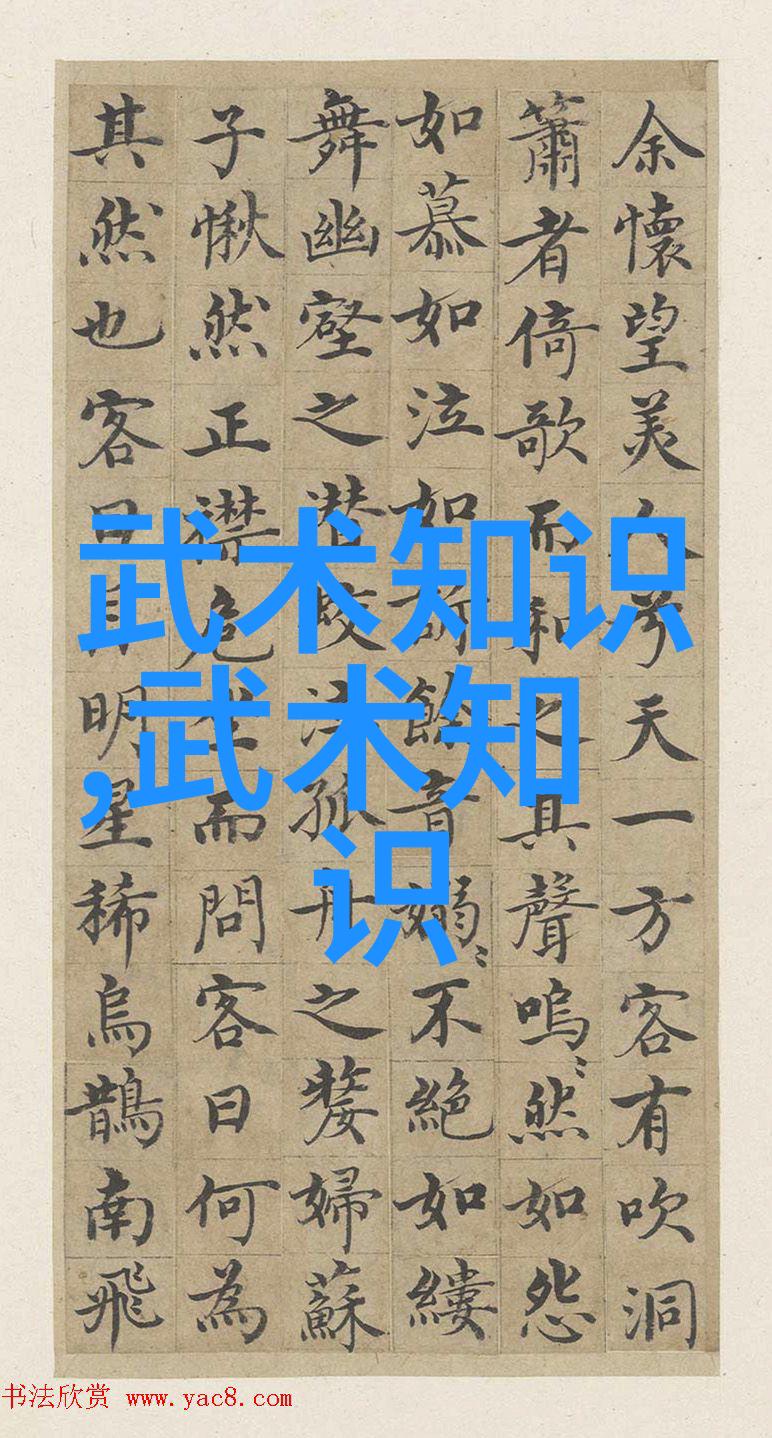 余懷望美人兮天一方客有吹洞
簫者倚歌而和之其聲嗚〻然如怨
如慕如泣如訴餘音嫋〻不絕如縷
舞幽壑之潛蛟泣孤舟之嫠婦蘇
子愀然正襟危坐而問客曰何為
其然也客曰月明星稀烏鵲南飛
武术知识
,武术知
识
书法欣赏 www.yac8.com